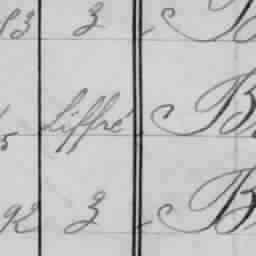 93 3 B
5 Liffré B
92 3 B